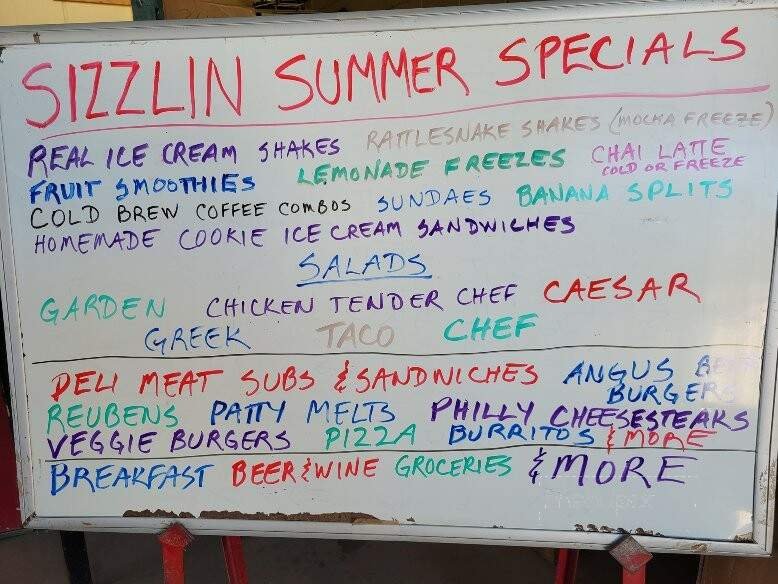 SIZZLIN SUMMER SPECIALS
REAL ICE CREAM SHAKES RATTLESNAKE SHAKES (MOCHA FREEZE)
FRUIT SMOOTHIES LEMONADE FREEZES CHAI LATTE
COLD OR FREEZE
COLD BREW COFFEE COMBOS SUNDAES BANANA SPLITS
HOMEMADE COOKIE ICE CREAM SANDWICHES
SALADS
GARDEN CHICKEN TENDER CHEF CAESAR
GREEK TACO CHEF
DELI MEAT SUBS & SANDWICHES ANGUS BEEF
BURGERS
REUBENS PATTY MELTS PHILLY CHEESESTEAKS
VEGGIE BURGERS PIZZA BURRITOS & MORE
BREAKFAST BEER & WINE GROCERIES & MORE